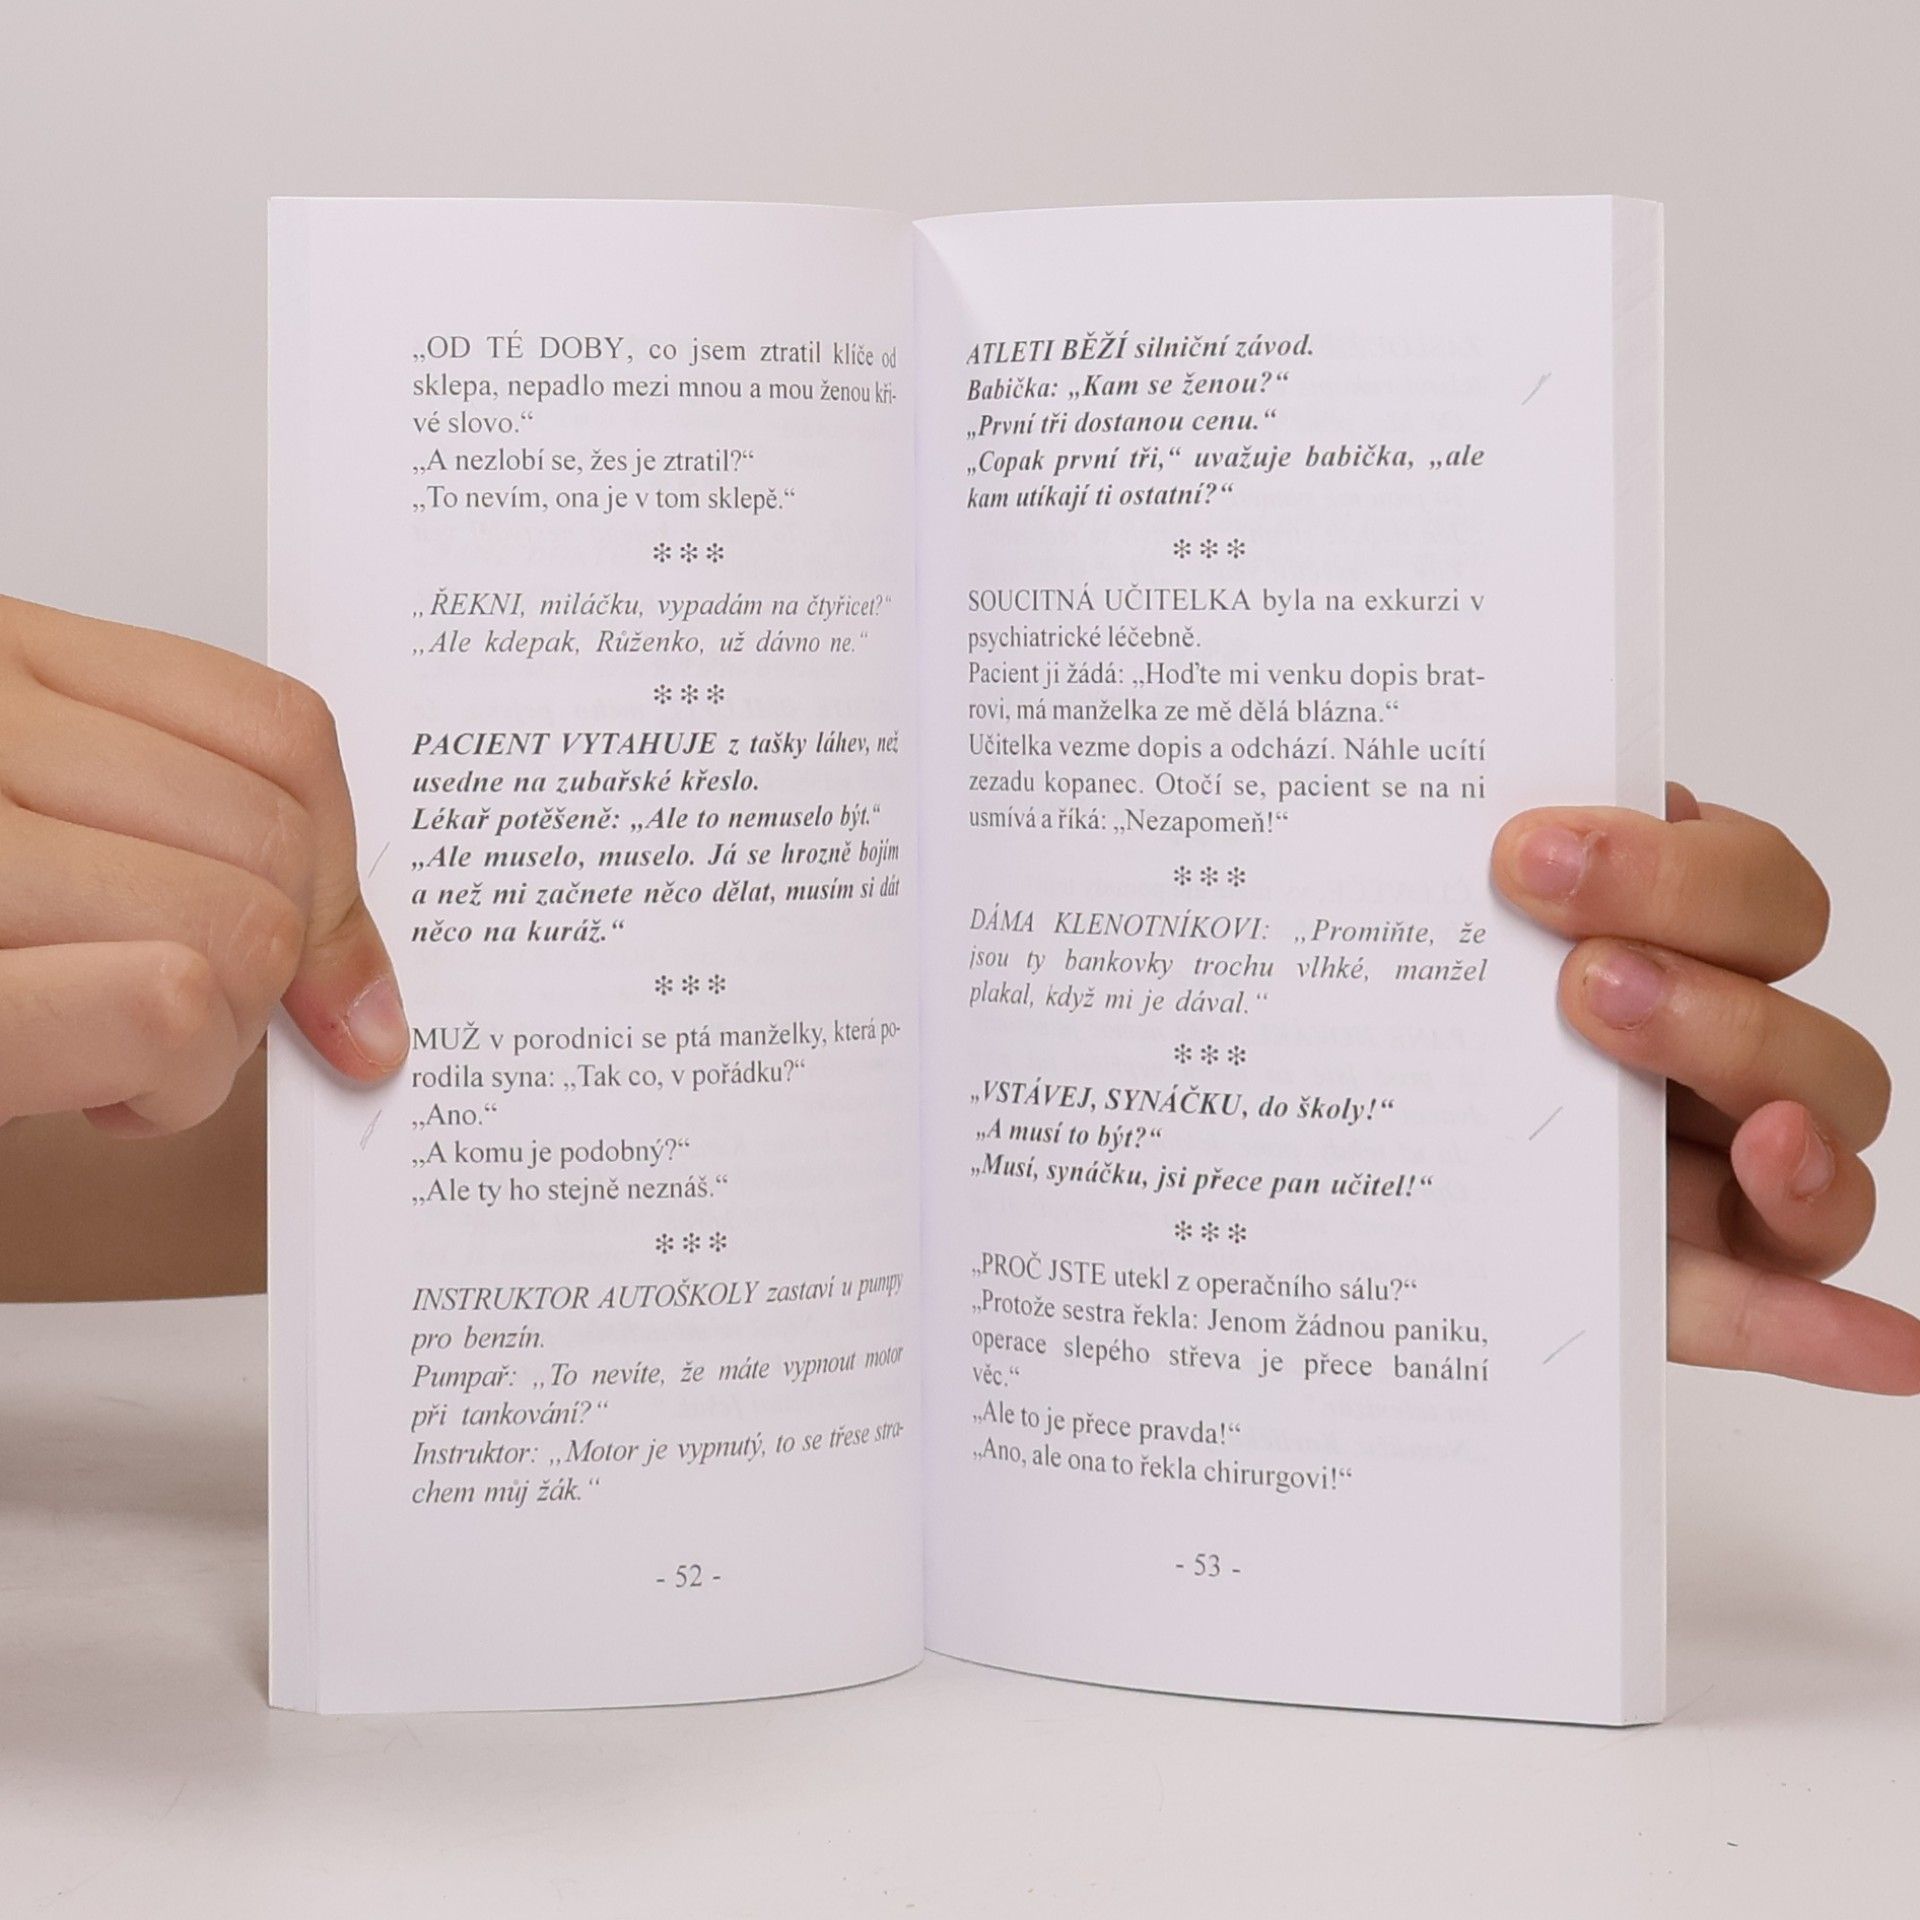 „OD TÉ DOBY, co jsem ztratil klíče od
sklepa, nepadlo mezi mnou a mou ženou kři-
vé slovo.“
„A nezlobí se, žes je ztratil?“
„To nevím, ona je v tom sklepě.“
***
„ŘEKNI, miláčku, vypadám na čtyřicet?“
„Ale kdepak, Růženko, už dávno ne.“
***
PACIENT VYTAHUJE z tašky láhev, než
usedne na zubařské křeslo.
Lékař potěšeně: „Ale to nemuselo být.“
„Ale muselo, muselo. Já se hrozně bojím
a než mi začnete něco dělat, musím si dát
něco na kuráž.“
***
MUŽ v porodnici se ptá manželky, která po-
rodila syna: „Tak co, v pořádku?“
„Ano.“
„A komu je podobný?“
„Ale ty ho stejně neznáš.“
***
INSTRUKTOR AUTOŠKOLY zastaví u pumpy
pro benzín.
Pumpař: „To nevíte, že máte vypnout motor
při tankování?“
Instruktor: „Motor je vypnutý, to se třese stra-
chem můj žák.“
- 52 -
ATLETI BĚŽÍ silniční závod.
Babička: „Kam se ženou?“
„První tři dostanou cenu.“
„Copak první tři,“ uvažuje babička, „ale
kam utíkají ti ostatní?“
***
SOUCITNÁ UČITELKA byla na exkurzi v
psychiatrické léčebně.
Pacient ji žádá: „Hoďte mi venku dopis brat-
rovi, má manželka ze mě dělá blázna.“
Učitelka vezme dopis a odchází. Náhle ucítí
zezadu kopanec. Otočí se, pacient se na ni
usmívá a říká: „Nezapomeň!“
***
DÁMA KLENOTNÍKOVI: „Promiňte, že
jsou ty bankovky trochu vlhké, manžel
plakal, když mi je dával.“
***
„VSTÁVEJ, SYNÁČKU, do školy!“
„A musí to být?“
„Musí, synáčku, jsi přece pan učitel!“
***
„PROČ JSTE utekl z operačního sálu?“
„Protože sestra řekla: Jenom žádnou paniku,
operace slepého střeva je přece banální
věc.“
„Ale to je přece pravda!“
„Ano, ale ona to řekla chirurgovi!“
- 53 -